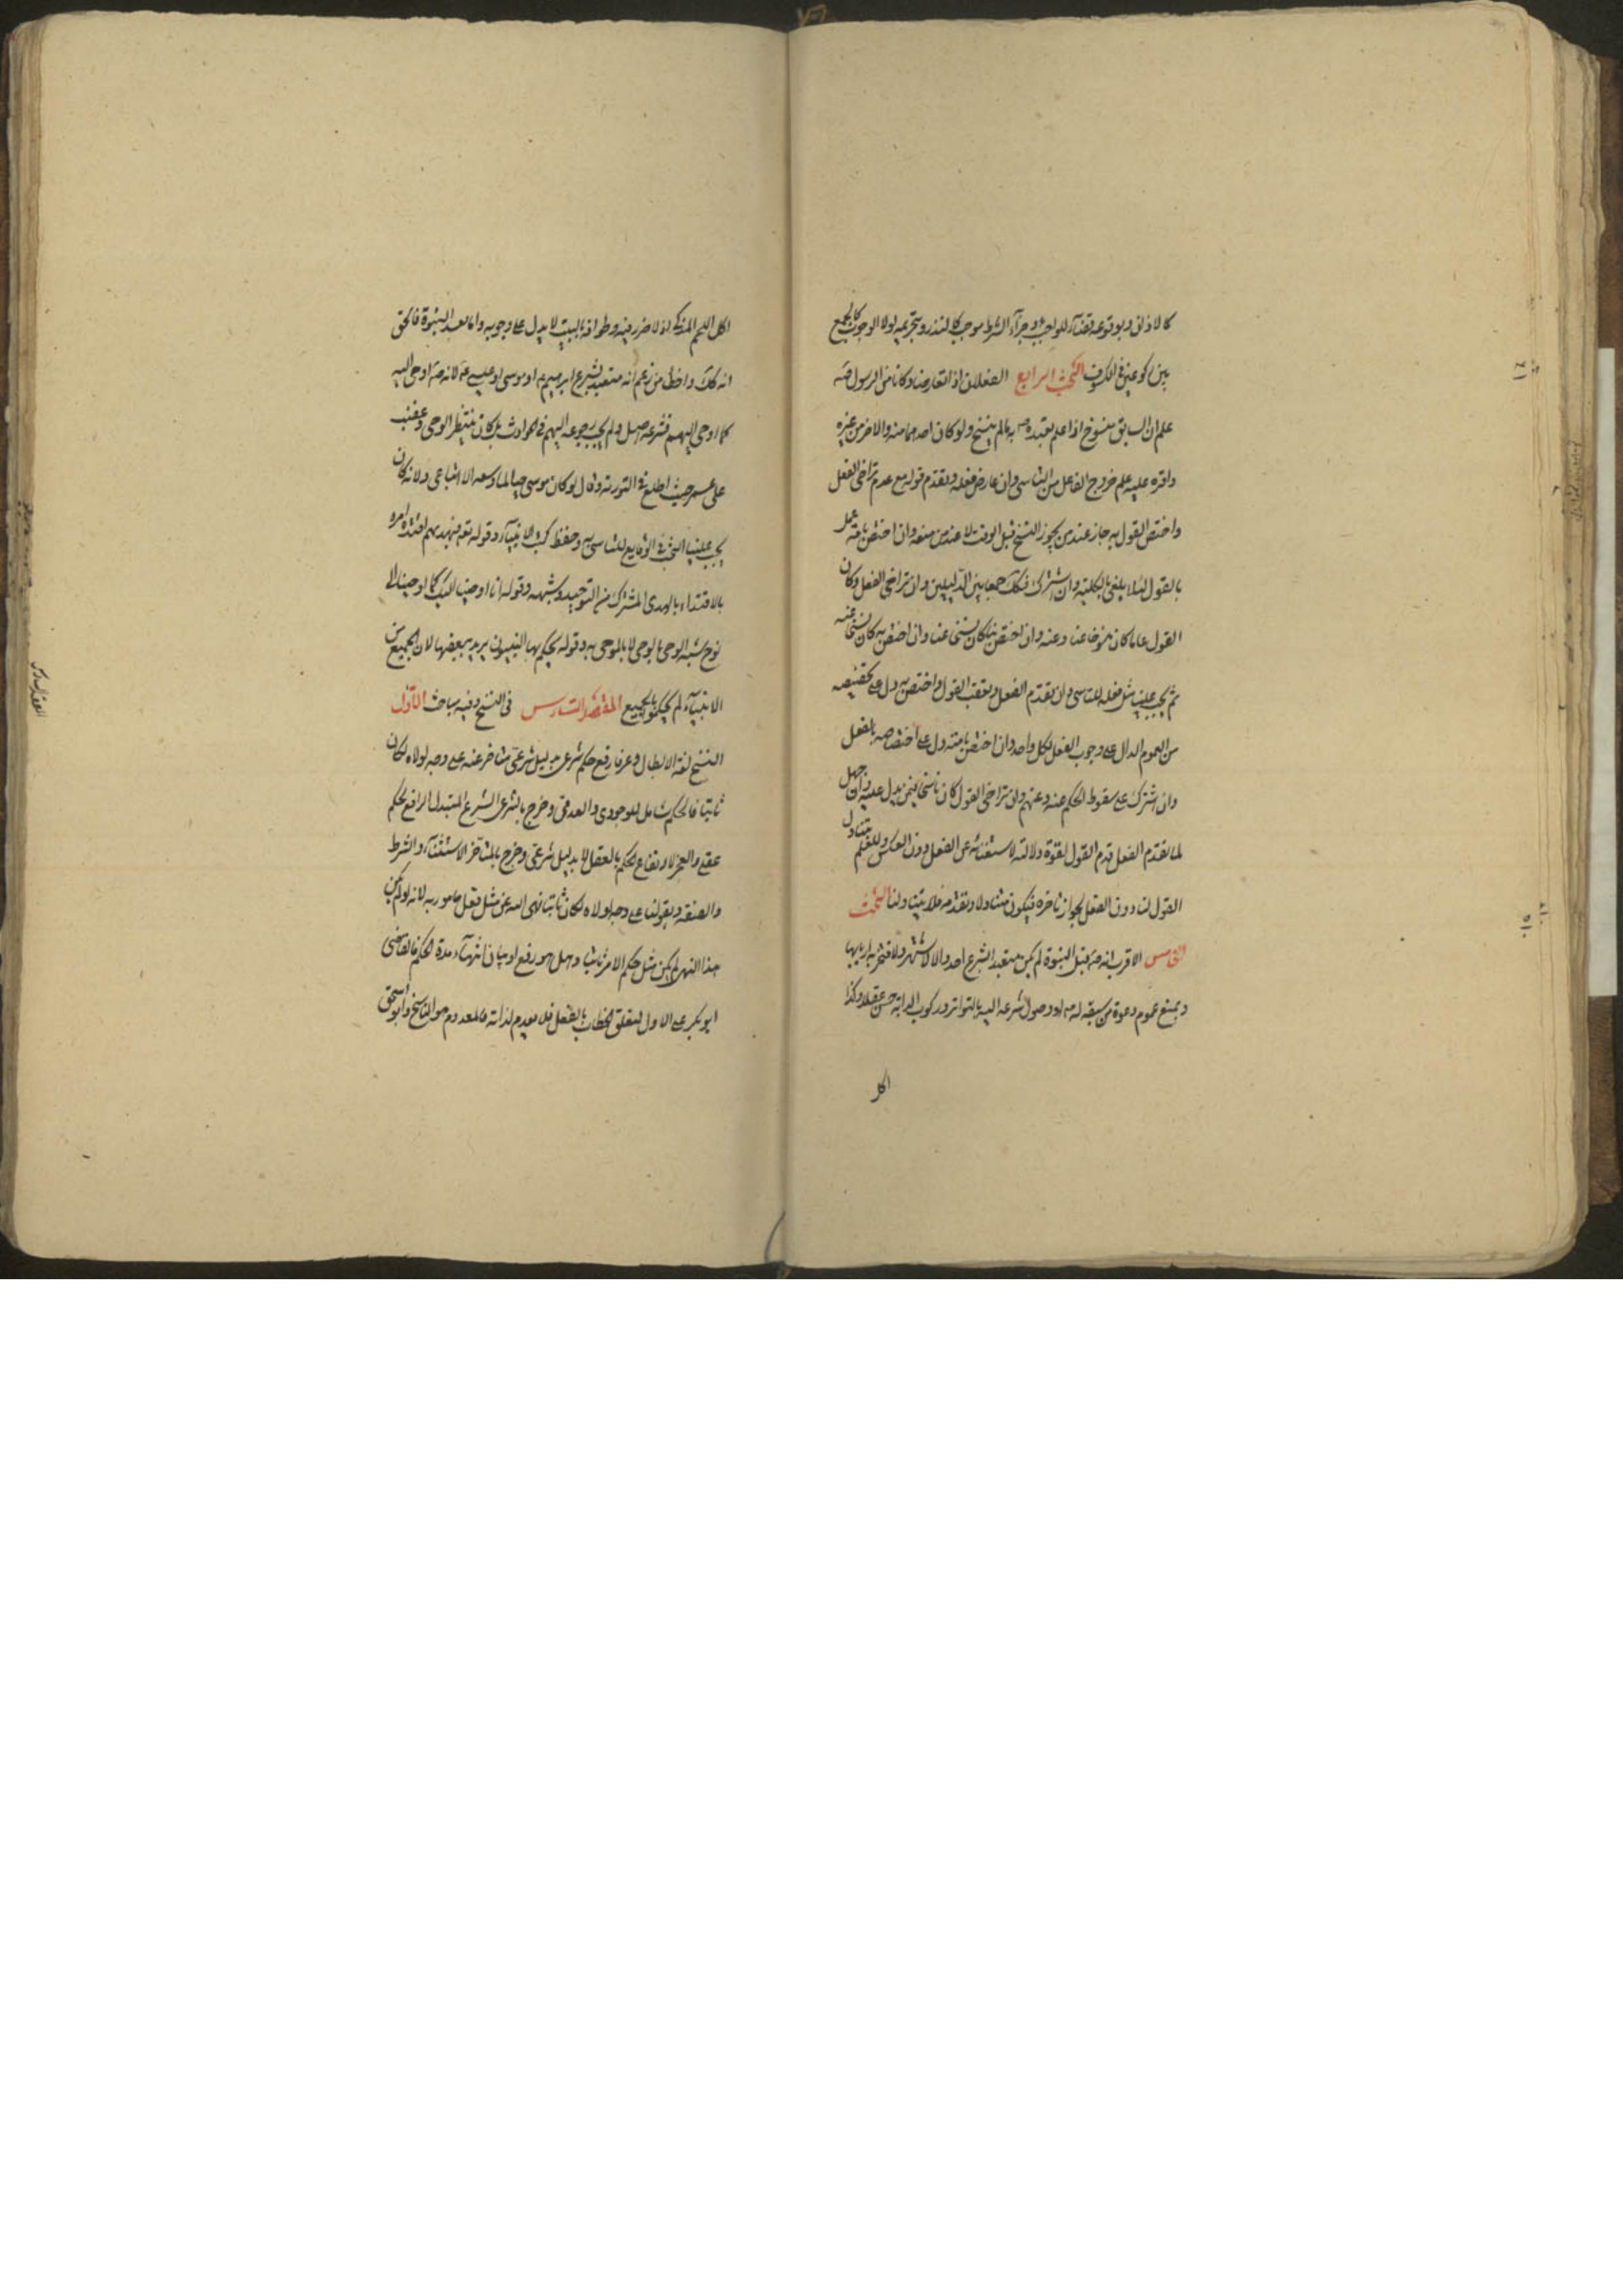 كالاذان وبوقوعه قضآء للواجب وجزآء الشرط موجب كالنذر وبتحريمه لولا الوجوب كالجمع
بين ركوعين في الكسوف البحث الرابع الفعلان اذا تعارضا وكانا من الرسول صه
علم ان السابق منسوخ اذا علم تعبده به ما لم ينسخ ولو كان احدهما منه والاخر من غيره
واقره عليه علم خروج الفاعل من التاسى وان عارض فعله وتقدم قوله مع عدم تراخى الفعل
واختص القول به جاز عند من يجوز النسخ قبل الوقت لا عند من منعه وان اختص بامته عمل
بالقول لئلا يلغى بالكلية وان اشترك فكك جمعا بين الدليلين وان تراخى الفعل وكان
القول عاما كان منسوخا عنا وعنه وان اختص بنا كان نسخا عنا وان اختص به كان نسخا عنه
ثم يجب علينا مثل فعله للتاسى وان تقدم الفعل وتعقب القول واختص به دل على تخصيصه
من العموم الدال على وجوب الفعل لكل واحد وان اختص بامته دل على اختصاصه بالفعل
وان اشترك على سقوط الحكم عنه وعنهم وان تراخى القول كان ناسخا فيمن يدل عليه وان جهل
لما تقدم الفعل قدم القول لقوة دلالته لاستغنائه عن الفعل دون العكس وللعلم بتناول
القول لنا دون الفعل لجواز تاخره فيكون متناولا وتقدمه فلا يتناولنا البحث
الخامس الاقرب انه صه قبل النبوة لم يكن متعبدا بشرع احد والا لاشتهر ولافتخر به اربابها
ويمنع عموم دعوة من سبقه له صه او وصول شرعه اليه بالتواتر وركوب الدابة حسن عقلا وكذا
اكل
اكل اللحم المذكى اذ لا ضرر فيه وطوافه بالبيت لا يدل على وجوبه واما بعد النبوة فالحق
انه كك واخطأ من زعم انه متعبد بشرع ابرهيم او موسى او عيسى لانه صه اوحى اليه
كما اوحى اليهم فشرعه اصل ولم يجب رجوعه اليهم في الحوادث بل كان ينتظر الوحى وغضب
على عمر حيث اطلع في التورية وقال لو كان موسى حيا لما وسعه الا اتباعى ولانه كان
يجب علينا البحث في الوقايع للتاسى به وحفظ كتب الانبيآء وقوله تع فبهديهم اقتده امره
بالاقتداء بالهدى المشترك من التوحيد وشبهه وقوله انا اوحينا اليك كما اوحينا الى
نوح شبه الوحى بالوحى لا بالموحى به وقوله يحكم بها النبيون يريد بعضها لان الجميع من
الانبيآء لم يحكموا بالجميع المقصد السادس في النسخ وفيه مباحث الاول
النسخ لغة الابطال وعرفا رفع حكم شرعى بدليل شرعى متاخر عنه على وجه لولاه لكان
ثابتا فالحكم شامل للوجودى والعدمى وخرج بالشرعى الشرع المبتدا الرافع لحكم
عقلى والعجز لارتفاع الحكم بالعقل لا بدليل شرعى وخرج بالمتاخر الاستثنآء والشرط
والصفة وبقولنا على وجه لولاه لكان ثابتا نهى الله عن مثل فعل مامور به لانه لو لم يكن
هذا النهى لم يكن مثل حكم الامر ثابتا وهل هو رفع او بيان انتهآء مدة الحكم فالقاضى
ابو بكر على الاول لتعلق الخطاب بالفعل فلا يعدم لذاته فالمعدم هو الناسخ وابو اسحق
المقصد السادس